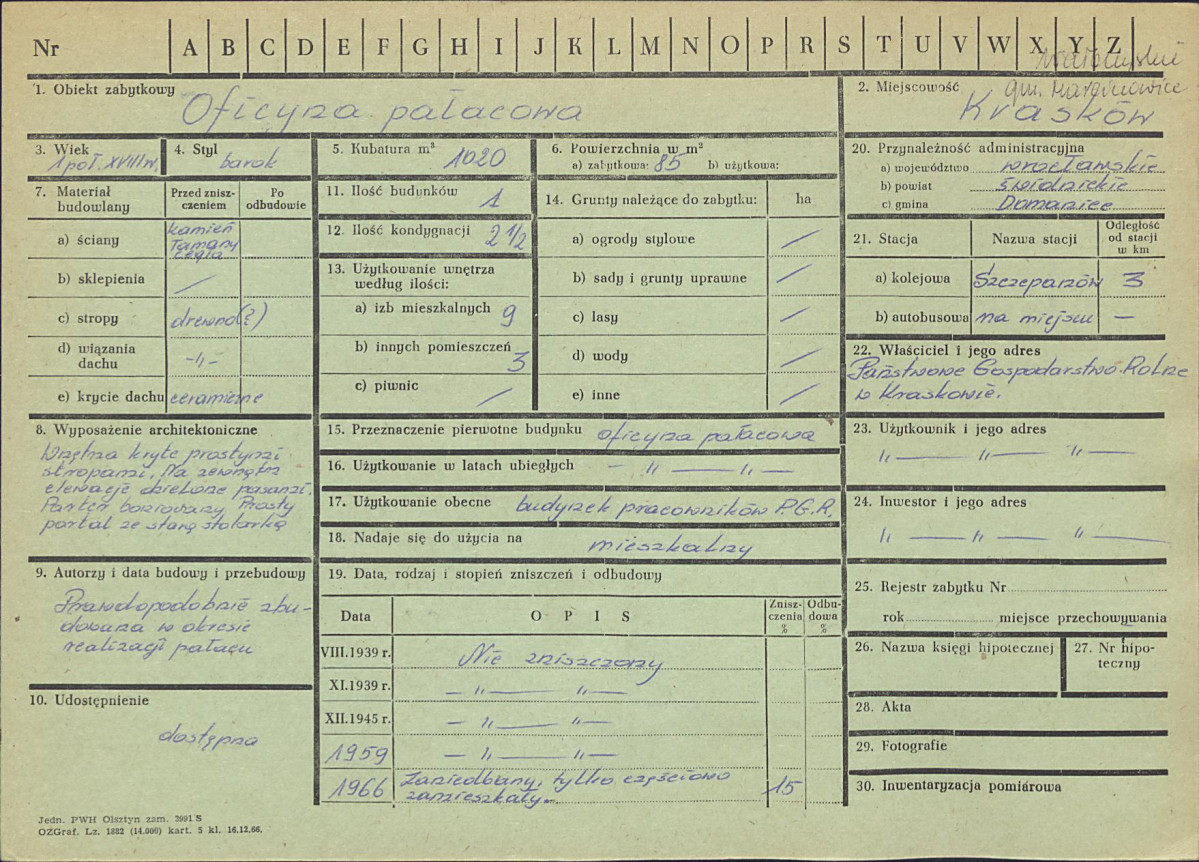 Nr A B C D E F G H I J K L M N O P R S T U V W X Y Z
gm. Marcinowice
1. Obiekt zabytkowy
Oficyna pałacowa
2. Miejscowość
Krasków
3. Wiek
1 poł. XVIII w.
4. Styl
barok
5. Kubatura m³
1020
6. Powierzchnia w m²
a) zabytkowa: 85 b) użytkowa:
7. Materiał budowlany
Przed zniszczeniem
Po odbudowie
a) ściany
kamień
łamany
cegła
b) sklepienia /
c) stropy drewno(?)
d) wiązania dachu -"-
e) krycie dachu ceramiczne
8. Wyposażenie architektoniczne
Wnętrza kryte prostymi
stropami. Na zewnątrz
elewacje dzielone pasami.
Parter boniowany. Prosty
portal ze starą stolarką
9. Autorzy i data budowy i przebudowy
Prawdopodobnie zbu-
dowana w okresie
realizacji pałacu
10. Udostępnienie
dostępna
11. Ilość budynków 1
12. Ilość kondygnacji 2 1/2
13. Użytkowanie wnętrza
według ilości:
a) izb mieszkalnych 9
b) innych pomieszczeń 3
c) piwnic /
14. Grunty należące do zabytku: ha
a) ogrody stylowe /
b) sady i grunty uprawne /
c) lasy /
d) wody /
e) inne /
15. Przeznaczenie pierwotne budynku oficyna pałacowa
16. Użytkowanie w latach ubiegłych - " — " —
17. Użytkowanie obecne budynek pracowników P.G.R.
18. Nadaje się do użycia na mieszkalny
19. Data, rodzaj i stopień zniszczeń i odbudowy
Data
O P I S
Zniszczenia %
Odbudowa %
VIII.1939 r. Nie zniszczony
XI.1939 r. — " — " —
XII.1945 r. — " — " —
1959 — " — " —
1966 Zaniedbany, tylko częściowo
zamieszkały. 15
20. Przynależność administracyjna
a) województwo wrocławskie
b) powiat świdnickie
c) gmina Domanice
21. Stacja
Nazwa stacji
Odległość
od stacji
w km
a) kolejowa Szczepanów 3
b) autobusowa na miejscu —
22. Właściciel i jego adres
Państwowe Gospodarstwo Rolne
w Kraskowie.
23. Użytkownik i jego adres
" — " — " —
24. Inwestor i jego adres
" — " — " —
25. Rejestr zabytku Nr
rok miejsce przechowywania
26. Nazwa księgi hipotecznej
27. Nr hipo-
teczny
28. Akta
29. Fotografie
30. Inwentaryzacja pomiarowa
Jedn. PWH Olsztyn zam. 3991 S
OZGraf. Lz. 1882 (14.000) kart. 5 kl. 16.12.66.